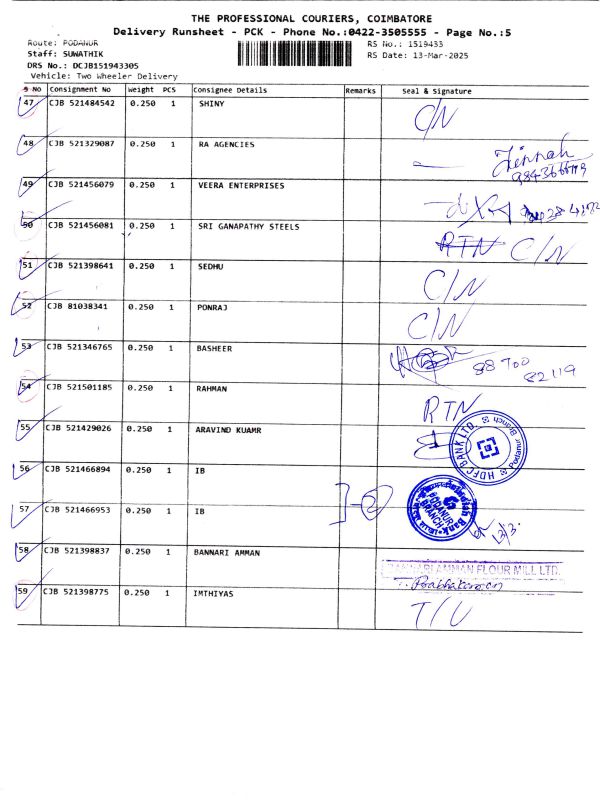 THE PROFESSIONAL COURIERS, COIMBATORE
Delivery Runsheet - PCK - Phone No.:0422-3505555 - Page No.:5
Route: PODANUR RS No.: 1519433
Staff: SUWATHIK RS Date: 13-Mar-2025
DRS No.: DCJB151943305
Vehicle: Two Wheeler Delivery
S No Consignment No Weight PCS Consignee Details Remarks Seal & Signature
47 CJB 521484542 0.250 1 SHINY C/N
48 CJB 521329087 0.250 1 RA AGENCIES
49 CJB 521456079 0.250 1 VEERA ENTERPRISES
50 CJB 521456081 0.250 1 SRI GANAPATHY STEELS RTN C/N
51 CJB 521398641 0.250 1 SEDHU C/N
52 CJB 81038341 0.250 1 PONRAJ C/N
53 CJB 521346765 0.250 1 BASHEER 88700
82119
54 CJB 521501185 0.250 1 RAHMAN RTN
55 CJB 521429026 0.250 1 ARAVIND KUAMR HDFC BANK LTD. Podanur Branch
56 CJB 521466894 0.250 1 IB
57 CJB 521466953 0.250 1 IB 2 Indian Bank PODANUR BRANCH 13/3.
58 CJB 521398837 0.250 1 BANNARI AMMAN BANNARI AMMAN FLOUR MILL LTD.
T. Prabhakaran
59 CJB 521398775 0.250 1 IMTHIYAS T/U